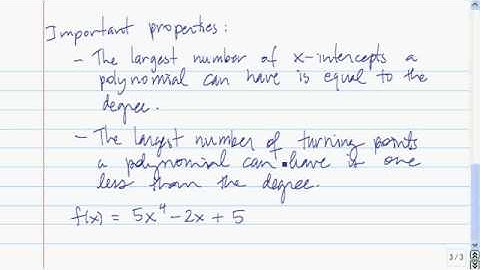 Important properties:
- The largest number of x-intercepts a
polynomial can have is equal to the
degree.
- The largest number of turning points
a polynomial can have is one
less than the degree.
f(x) = 5x⁴ - 2x + 5
3/3